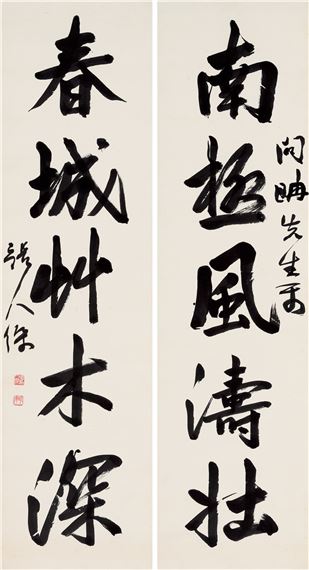 南極風濤壯
問畊先生屬
春城艸木深
張人傑